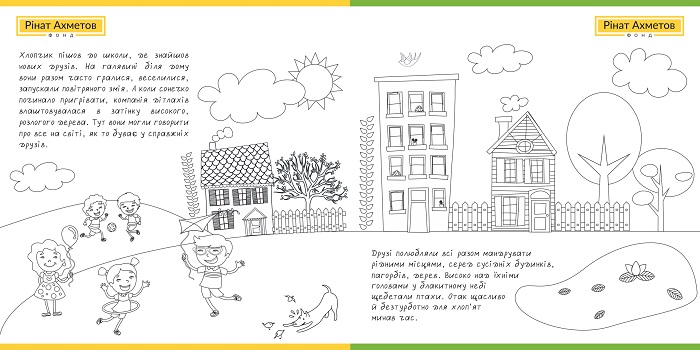 Рінат Ахметов
ФОНД
Хлопчик пішов до школи, де знайшов
нових друзів. На галявині біля дому
вони разом часто гралися, веселилися,
запускали повітряного змія. А коли сонечко
починало пригрівати, компанія вітлахів
влаштовувалася в затінку високого,
розлогого дерева. Тут вони могли говорити
про все на світі, як то буває у справжніх
друзів.
Рінат Ахметов
ФОНД
Друзі полюбляли всі разом мандрувати
рідними місцями, серед сусідніх будинків,
пагорбів, дерев. Високо над їхніми
головами у блакитному небі
щебетали птахи. Отак щасливо
й безтурботно для хлоп'ят
минав час.